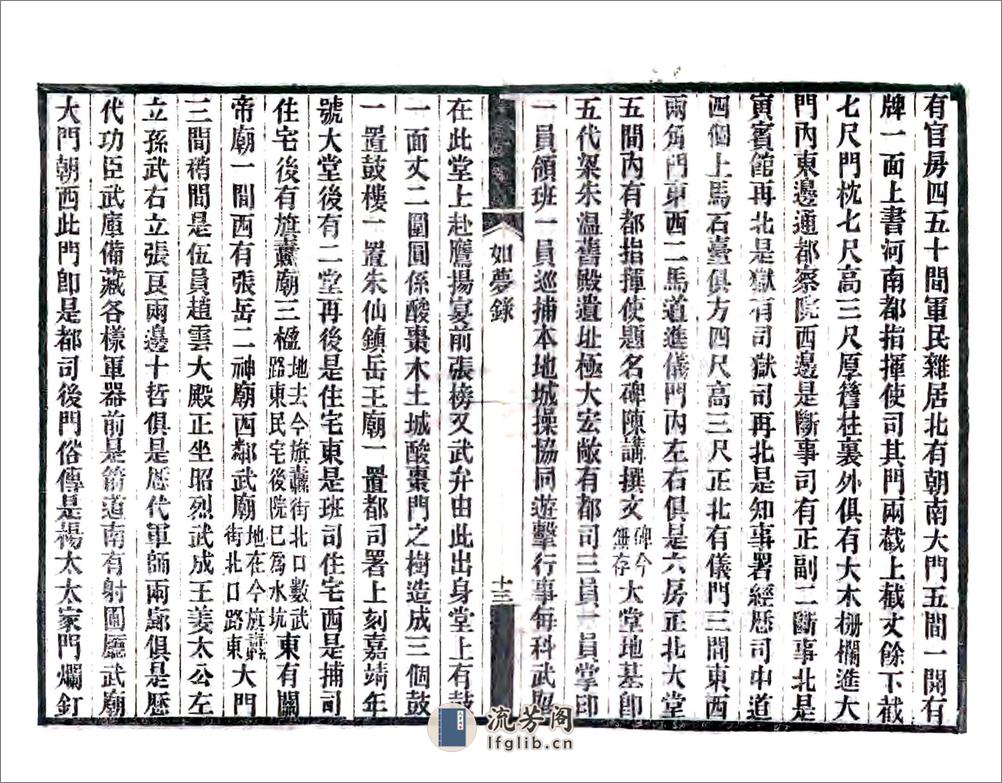 有官房四五十間軍民雜居北有朝南大門五間一開有
牌一面上書河南都指揮使司其門兩截上截丈餘下截
七尺門枕七尺高三尺厚簷柱裏外俱有大木柵欄進大
門內東邊通都察院西邊是斷事司有正副二斷事北是
寅賓館再北是獄有司獄司再北是知事署經歷司中道
四個上馬石臺俱方四尺高三尺正北有儀門三間東西
兩角門東西二馬道進儀門內左右俱是六房正北大堂
五間內有都指揮使題名碑陳講撰文碑今無存大堂地基即
五代梁朱溫舊殿遺址極大宏敞有都司三員一員掌印
一員領班一員巡捕本地城操協同遊擊行事每科武
如夢錄
十三
在此堂上赴鷹揚宴前張榜又武弁由此出身堂上有鼓
一面丈二圍圓係酸棗木土城酸棗門之樹造成三個鼓
一置鼓樓一置朱仙鎮岳王廟一置都司署上刻嘉靖年
號大堂後有二堂再後是住宅東是班司住宅西是捕司
住宅後有旗纛廟三楹地去今旗纛街北口數武路東民宅後院已爲水坑東有關
帝廟一間西有張岳二神廟西鄰武廟地在今旗纛街北口路東大門
三間稍間是伍員趙雲大殿正坐昭烈武成王姜太公左
立孫武右立張良兩邊十哲俱是歷代軍師兩廊俱是歷
代功臣武庫備藏各樣軍器前是箭道南有射圃廳武廟
大門朝西此門即是都司後門俗傳是楊太太家門爛釘
流芳阁
lfglib.cn